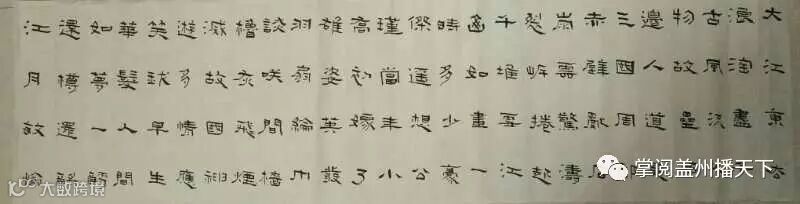 大江東去
浪淘盡
古風流
物故壘
邊人道
三國周郎
赤壁亂石
雲驚濤
裂岸捲起
千堆雪江
如畫一
時多少豪
傑遥想公
瑾當年小
高初嫁了
雄姿英發
羽扇綸巾
談咲間檣
櫓灰飛煙
滅故國神
遊多情應
笑我早生
華髮人間
如夢一
還樽還
江月
掌阅盖州播天下
大数跨境